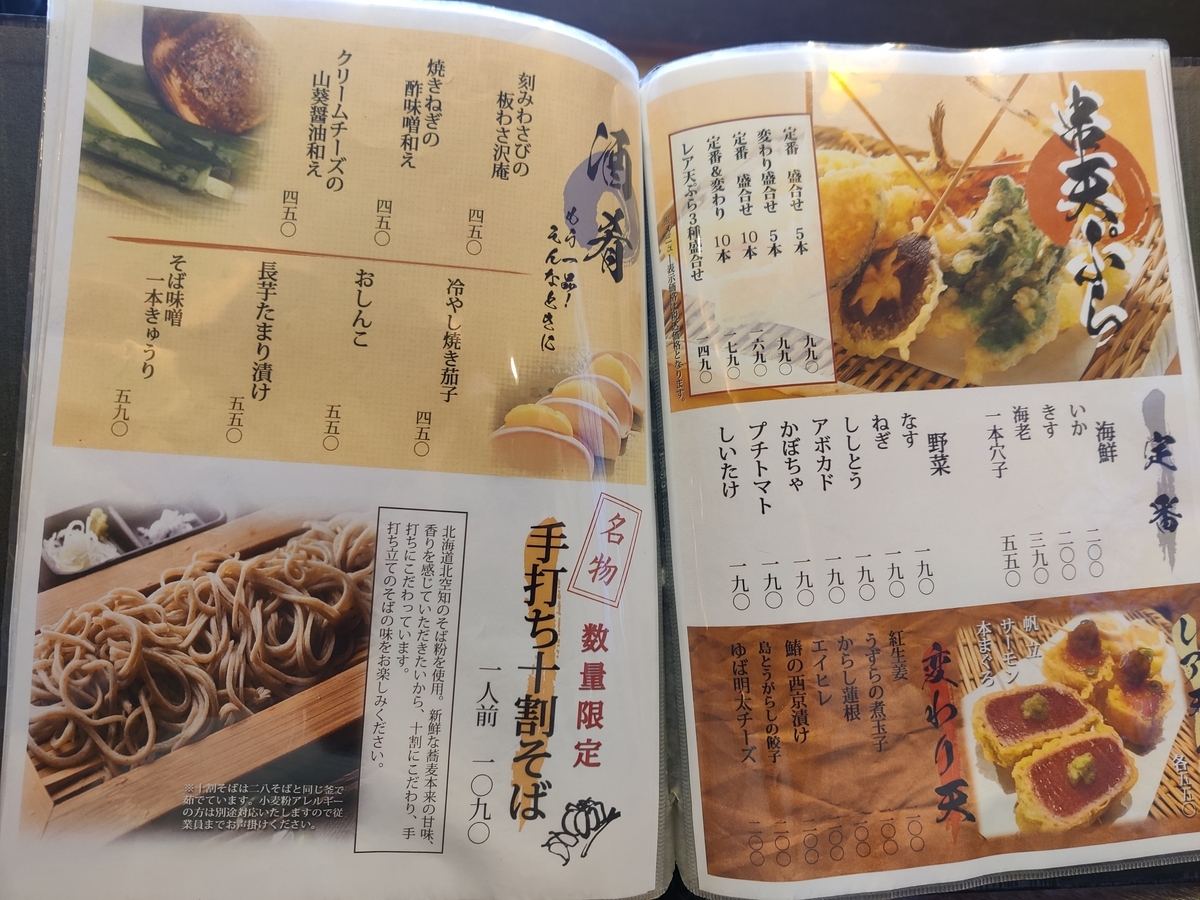 串天ぷら
定番 盛合せ 5本 九九〇
変わり盛合せ 5本 九九〇
定番 盛合せ 10本 一六九〇
定番&変わり 10本 一七九〇
レア天ぷら3種盛合せ 一四九〇
定番
海鮮
いか 二〇〇
きす 二〇〇
海老 三九〇
一本穴子 五五〇
野菜
なす 一九〇
ねぎ 一九〇
ししとう 一九〇
アボカド 一九〇
かぼちゃ 一九〇
プチトマト 一九〇
しいたけ 一九〇
帆立
サーモン
本まぐろ
各五五〇
変わり天
紅生姜 二〇〇
うずらの煮玉子 二〇〇
からし蓮根 二〇〇
エイヒレ 二〇〇
鰆の西京漬け 二〇〇
島とうがらしの餃子 二〇〇
ゆば明太チーズ 二〇〇
酒肴
もう一品!
そんなときに
刻みわさびの
板わさ沢庵 四五〇
焼きねぎの
酢味噌和え 四五〇
クリームチーズの
山葵醤油和え 四五〇
冷やし焼き茄子 四五〇
おしんこ 五五〇
長芋たまり漬け 五五〇
そば味噌
一本きゅうり 五九〇
名物
数量限定
手打ち十割そば
一人前 一〇九〇
北海道北空知のそば粉を使用。新鮮な蕎麦本来の甘味、
香りを感じていただきたいから、十割にこだわり、手
打ちにこだわっています。
打ち立てのそばの味をお楽しみください。
※十割そばは二八そばと同じ釜で
茹でています。小麦粉アレルギー
の方は別途対応いたしますので従
業員までお声掛けください。